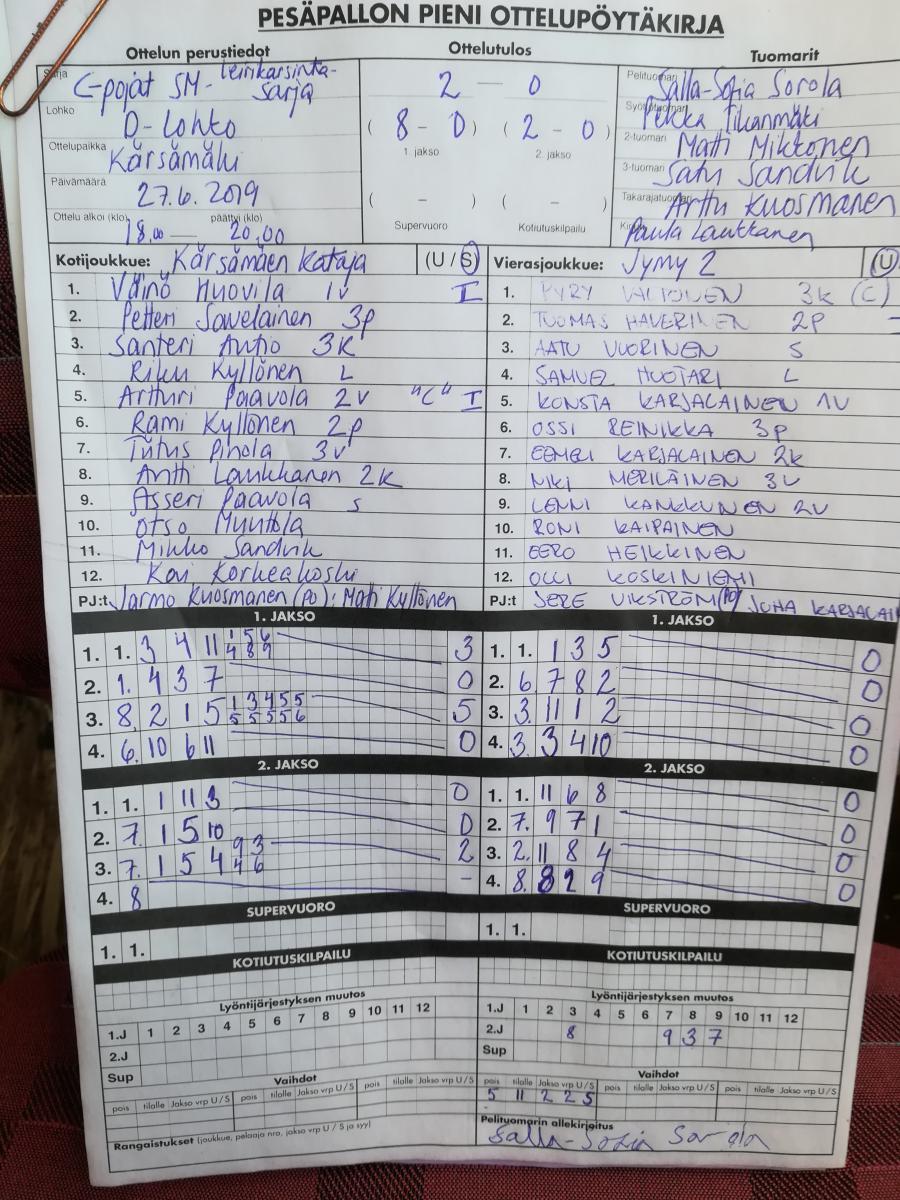 PESÄPALLON PIENI OTTELUPÖYTÄKIRJA
Ottelun perustiedot
Sarja
C-pojat SM- leirikarsinta-
sarja
Lohko
D-Lohko
Ottelupaikka
Kärsämäki
Päivämäärä
27.6.2019
Ottelu alkoi (klo) päättyi (klo)
18.00 — 20.00
Ottelutulos
2 — 0
( 8 - 0 ) ( 2 - 0 )
1. jakso 2. jakso
( - ) ( - )
Supervuoro Kotiutuskilpailu
Tuomarit
Pelituomari
Salla-Sofia Sorola
Pekka Tikanmäki
2-tuomari Matti Mikkonen
3-tuomari Satu Sandvik
Takarajatuomari Arttu Kuosmanen
Paula Laukkanen
Kotijoukkue: Kärsämäen Kataja (U / S)
1. Väinö Huovila 1v I
2. Petteri Savelainen 3p
3. Santeri Autio 3K
4. Riku Kyllönen L
5. Artturi Paavola 2v "C" I
6. Rami Kyllönen 2p
7. Tiitus Pihola 3v
8. Antti Laukkanen 2K
9. Asseri Paavola s
10. Otso Muuttola
11. Mikko Sandvik
12. Kovi Korkeakoski
PJ:t Jarmo Kuosmanen (PO): Mati Kyllönen
Vierasjoukkue: Jymy 2 (U
1. PYRY VALTONEN 3K (C)
2. TUOMAS HAVERINEN 2P -
3. AATU VUORINEN S
4. SAMUEL HUOTARI L
5. KONSTA KARJALAINEN 1V
6. OSSI REINIKKA 3P
7. EEMELI KARJALAINEN 2K
8. NIKI MERILÄINEN 3V
9. LENNI KANKKUNEN 2V
10. RONI KAIPAINEN
11. EERO HEIKKINEN
12. OLLI KOSKINIEMI
PJ:t JERE VIKSTRÖM (PO) JUHA KARJALAI
1. JAKSO
1. 1. 3 4 11 1 5 6 3
4 8 9
2. 1. 4 3 7 0
3. 8. 2 1 5 1 3 4 5 5 5
5 5 5 5 6
4. 6. 10 6 11 0
1. JAKSO
1. 1. 1 3 5 0
2. 6. 7 8 2 0
3. 3. 11 1 2 0
4. 3. 3 4 10 0
2. JAKSO
1. 1. 1 11 3 0
2. 7. 1 5 10 0
3. 7. 1 5 4 9 3 2
4 6
4. 8 -
2. JAKSO
1. 1. 11 6 8 0
2. 7. 9 7 1 0
3. 2. 11 8 4 0
4. 8. 8 2 9 0
SUPERVUORO
1. 1.
SUPERVUORO
1. 1.
KOTIUTUSKILPAILU
KOTIUTUSKILPAILU
Lyöntijärjestyksen muutos
1.J 1 2 3 4 5 6 7 8 9 10 11 12
2.J
Sup
Lyöntijärjestyksen muutos
1.J 1 2 3 4 5 6 7 8 9 10 11 12
2.J 8 9 3 7
Sup
Vaihdot
pois tilalle Jakso vrp U / S pois tilalle Jakso vrp U / S pois tilalle Jakso vrp U / S
Rangaistukset (joukkue, pelaaja nro, jakso vrp U / S ja syy)
Vaihdot
pois tilalle Jakso vrp U / S pois tilalle Jakso vrp U / S pois tilalle Jakso vrp U / S
5 11 2 2 S
Pelituomarin allekirjoitus
Salla-Sofia Sorola